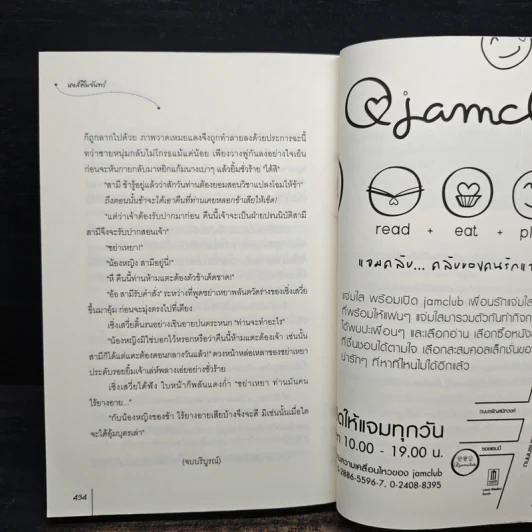 ก็ถูกลากไปด้วย ภาพวาดเหมยแดงจึงถูกทำลายลงด้วยประการฉะนี้
ทว่าชายหนุ่มกลับไม่โกรธแม้แต่น้อย เพียงวางพู่กันลงอย่างใจเย็น
ก่อนจะหันกายกลับมาหยิกแก้มนางเบาๆ แล้วยิ้มชั่วร้าย "ได้สิ"
"สามี ข้ารู้อยู่แล้วว่าสักวันท่านต้องยอมสอนวิชาแปลงโฉมให้ข้า"
ถึงตอนนั้นข้าจะได้เอาคืนที่ท่านเคยหลอกข้าเสียให้เข็ด!
"แต่ว่าเจ้าต้องรับปากมาก่อน คืนนี้เจ้าจะเป็นฝ่ายปรนนิบัติสามี
สามีจึงจะรับปากสอนเจ้า"
"เซย่าเหยา!"
"น้องหญิง สามีอยู่นี่!"
"หึ คืนนี้ท่านห้ามแตะต้องตัวข้าเด็ดขาด!"
"อ้อ สามีรับคำสั่ง" ระหว่างที่พูดเซย่าเหยาพลันตวัดร่างของเซิ่งเสวี่ย
ขึ้นมาอุ้ม ก่อนจะมุ่งตรงไปที่เตียง
เซิ่งเสวี่ยดิ้นรนอย่างเขินอายปนตระหนก "ท่านจะทำอะไร"
"น้องหญิงมิใช่บอกไว้หรอกหรือว่าคืนนี้ห้ามแตะต้องเจ้า เช่นนั้น
สามีก็ได้แต่แตะต้องตอนกลางวันแล้ว!" ดวงหน้าหล่อเหลาของเซย่าเหยา
ประดับรอยยิ้มเจ้าเล่ห์พลางเอ่ยอย่างชั่วร้าย
เซิ่งเสวี่ยได้ฟัง ใบหน้าก็พลันแดงก่ำ "เซย่าเหยา ท่านมันคน
ไร้ยางอาย..."
"กับน้องหญิงของข้า ไร้ยางอายเสียบ้างจึงจะดี มิเช่นนั้นเมื่อใด
จะได้อุ้มบุตรเล่า"
(จบบริบูรณ์)
434
jamclu
read + eat + pl
แจมคลับ... คลับของคนรักแ
แจ่มใส พร้อมเปิด jamclub เพื่อนรักแจ่มใ
ที่พร้อมให้แฟนๆ แจ่มใสมารวมตัวกันทำกิจก
ได้พบปะเพื่อนๆ และเลือกอ่าน เลือกซื้อหนัง
ที่ชื่นชอบได้ตามใจ เลือกสะสมคอลเล็กชั่นขอ
น่ารักๆ ที่หาที่ไหนไม่ได้อีกแล้ว
ดให้แจมทุกวัน
10.00 - 19.00 น.
ามความเคลื่อนไหวของ jamclub
-2886-5596-7, 0-2408-8395